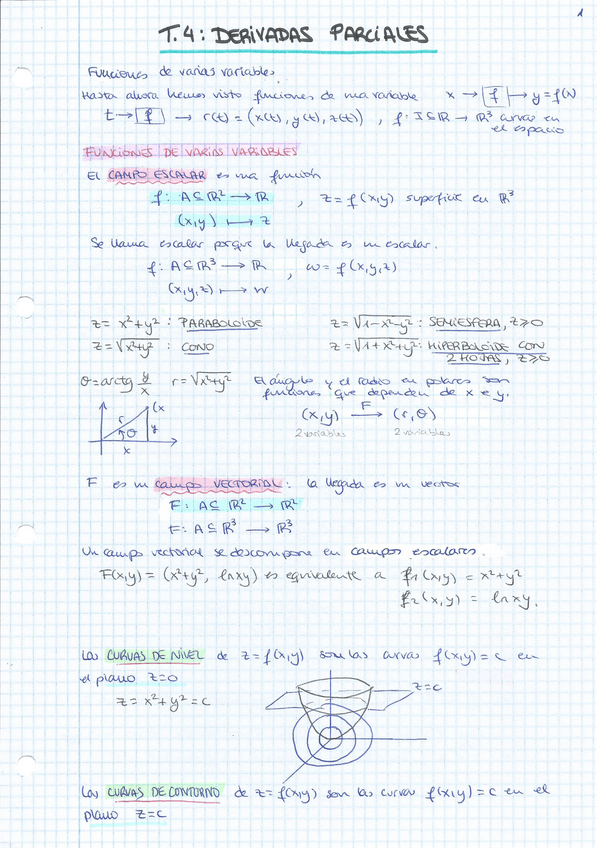 1
T.4: DERIVADAS PARCIALES
Funciones de varias variables.
Hasta ahora hemos visto funciones de una variable x → f ↦ y = f(x)
t → f → r(t) = (x(t), y(t), z(t)), f: I ⊆ ℝ → ℝ³ curva en el espacio
FUNCIONES DE VARIAS VARIABLES
El CAMPO ESCALAR es una función
f: A ⊆ ℝ² → ℝ , z = f(x,y) superficie en ℝ³
(x,y) ↦ z
Se llama escalar porque la llegada es un escalar.
f: A ⊆ ℝ³ → ℝ , w = f(x,y,z)
(x,y,z) ↦ w
z = x²+y² : PARABOLOIDE z = √1-x²-y² : SEMIESFERA, z ≥ 0
z = √x²+y² : CONO z = √1+x²+y² : HIPERBOLOIDE CON 2 HOJAS, z ≥ 0
θ = arctg y/x r = √x²+y² El ángulo y el radio en polares son
funciones que dependen de x e y.
(x
r y
θ
x
(x,y) F→ (r,θ)
2 variables 2 variables
F es un CAMPO VECTORIAL: la llegada es un vector
F: A ⊆ ℝ² → ℝ²
F: A ⊆ ℝ³ → ℝ³
Un campo vectorial se descompone en campos escalares.
F(x,y) = (x²+y², lnxy) es equivalente a f1(x,y) = x²+y²
f2(x,y) = lnxy.
Las CURVAS DE NIVEL de z=f(x,y) son las curvas f(x,y)=c en
el plano z=0
z = x²+y² = c
z=c
Las CURVAS DE CONTORNO de z=f(x,y) son las curvas f(x,y)=c en el
plano z=c